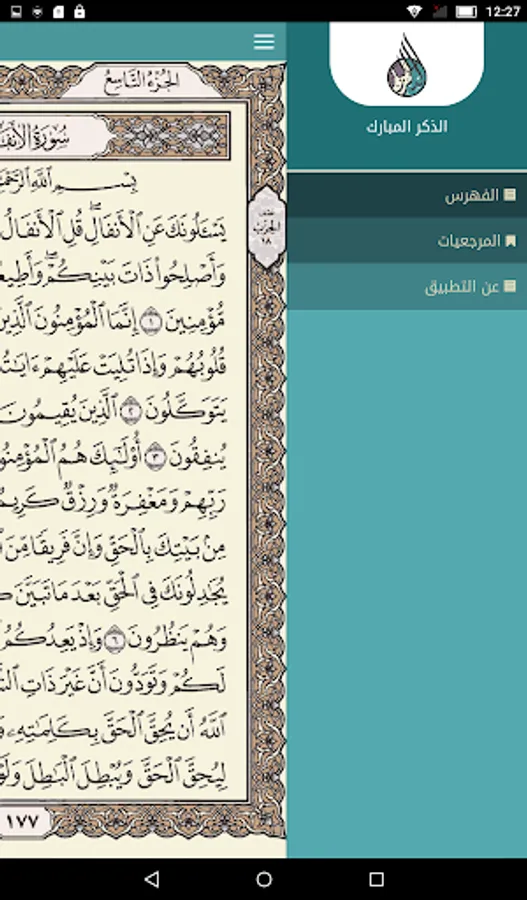 12:27
الذكر المبارك
الفهرس
المرجعيات
عن التطبيق
الجُزْءُ التَّاسِعُ
سُورَةُ الأنفَ
بِسْمِ ٱللَّهِ ٱلرَّحْمَ
يَسْـَٔلُونَكَ عَنِ ٱلْأَنفَالِۖ قُلِ ٱلْأَنفَالُ
وَأَصْلِحُوا۟ ذَاتَ بَيْنِكُمْۖ وَأَطِيعُ
مُّؤْمِنِينَ ١ إِنَّمَا ٱلْمُؤْمِنُونَ ٱلَّذِينَ
قُلُوبُهُمْ وَإِذَا تُلِيَتْ عَلَيْهِمْ ءَايَـٰتُ
يَتَوَكَّلُونَ ٢ ٱلَّذِينَ يُقِيمُونَ
يُنفِقُونَ ٣ أُو۟لَـٰٓئِكَ هُمُ ٱلْمُؤْمِنُو
رَبِّهِمْ وَمَغْفِرَةٌ وَرِزْقٌ كَرِيمٌ
مِنۢ بَيْتِكَ بِٱلْحَقِّ وَإِنَّ فَرِيقًا مِّنَ
يُجَـٰدِلُونَكَ فِى ٱلْحَقِّ بَعْدَ مَا تَبَيَّنَ
وَهُمْ يَنظُرُونَ ٦ وَإِذْ يَعِدُكُمُ
لَكُمْ وَتَوَدُّونَ أَنَّ غَيْرَ ذَاتِ
ٱللَّهُ أَن يُحِقَّ ٱلْحَقَّ بِكَلِمَـٰتِهِۦ
لِيُحِقَّ ٱلْحَقَّ وَيُبْطِلَ ٱلْبَـٰطِلَ وَلَوْ
الحزب
١٨
١٧٧